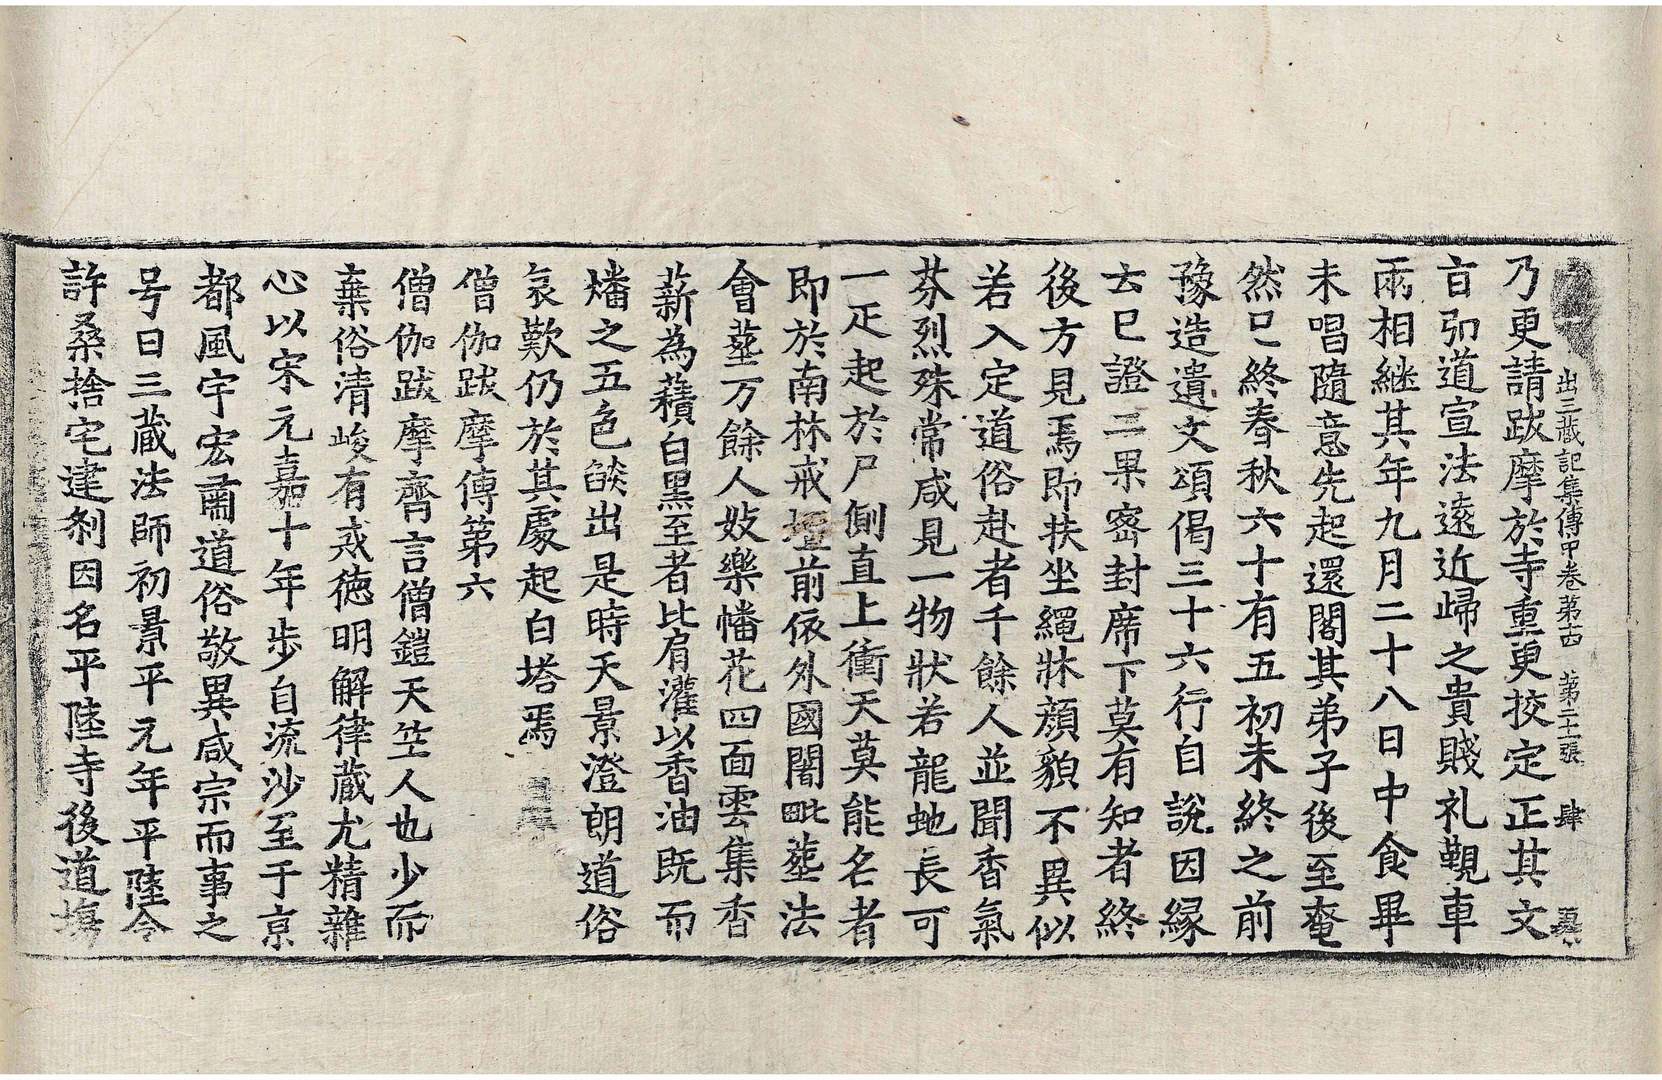 出三藏記集傳中卷第十四 第二十張 肆
乃更請跋摩於寺重更挍定正其文
旨引道宣法遠近歸之貴賤礼覲車
兩相継其年九月二十八日中食畢
未唱隨意先起還閣其弟子後至奄
然已終春秋六十有五初未終之前
豫造遺文頌偈三十六行自說因緣
去已證二果密封席下莫有知者終
後方見焉即扶坐繩牀顔貌不異似
若入定道俗赴者千餘人並聞香氣
芬烈殊常咸見一物狀若龍虵長可
一疋起於尸側直上衝天莫能名者
即於南林戒壇前依外國闍毗葬法
會葬万餘人妓樂幡花四面雲集香
薪為䕆白黑至者比肩灌以香油既而
燔之五色焰出是時天景澄朗道俗
哀歎仍於其處起白塔焉
僧伽跋摩傳第六
僧伽跋摩齊言僧鎧天竺人也少而
棄俗清峻有戒徳明解律藏尤精雜
心以宋元嘉十年步自流沙至于京
都風宇宏肅道俗敬異咸宗而事之
号曰三藏法師初景平元年平陸令
許桑捨宅建刹因名平陸寺後道場